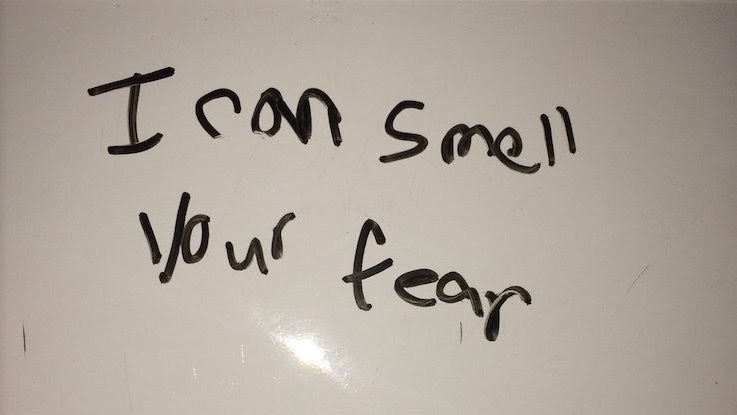 I can smell
your fear